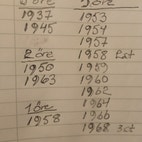 öre
1937
1945
2 öre
1950
1963
1 öre
1958
öre
1953
1954
1957
1958
1959
1960
1962
1964
1966
1968